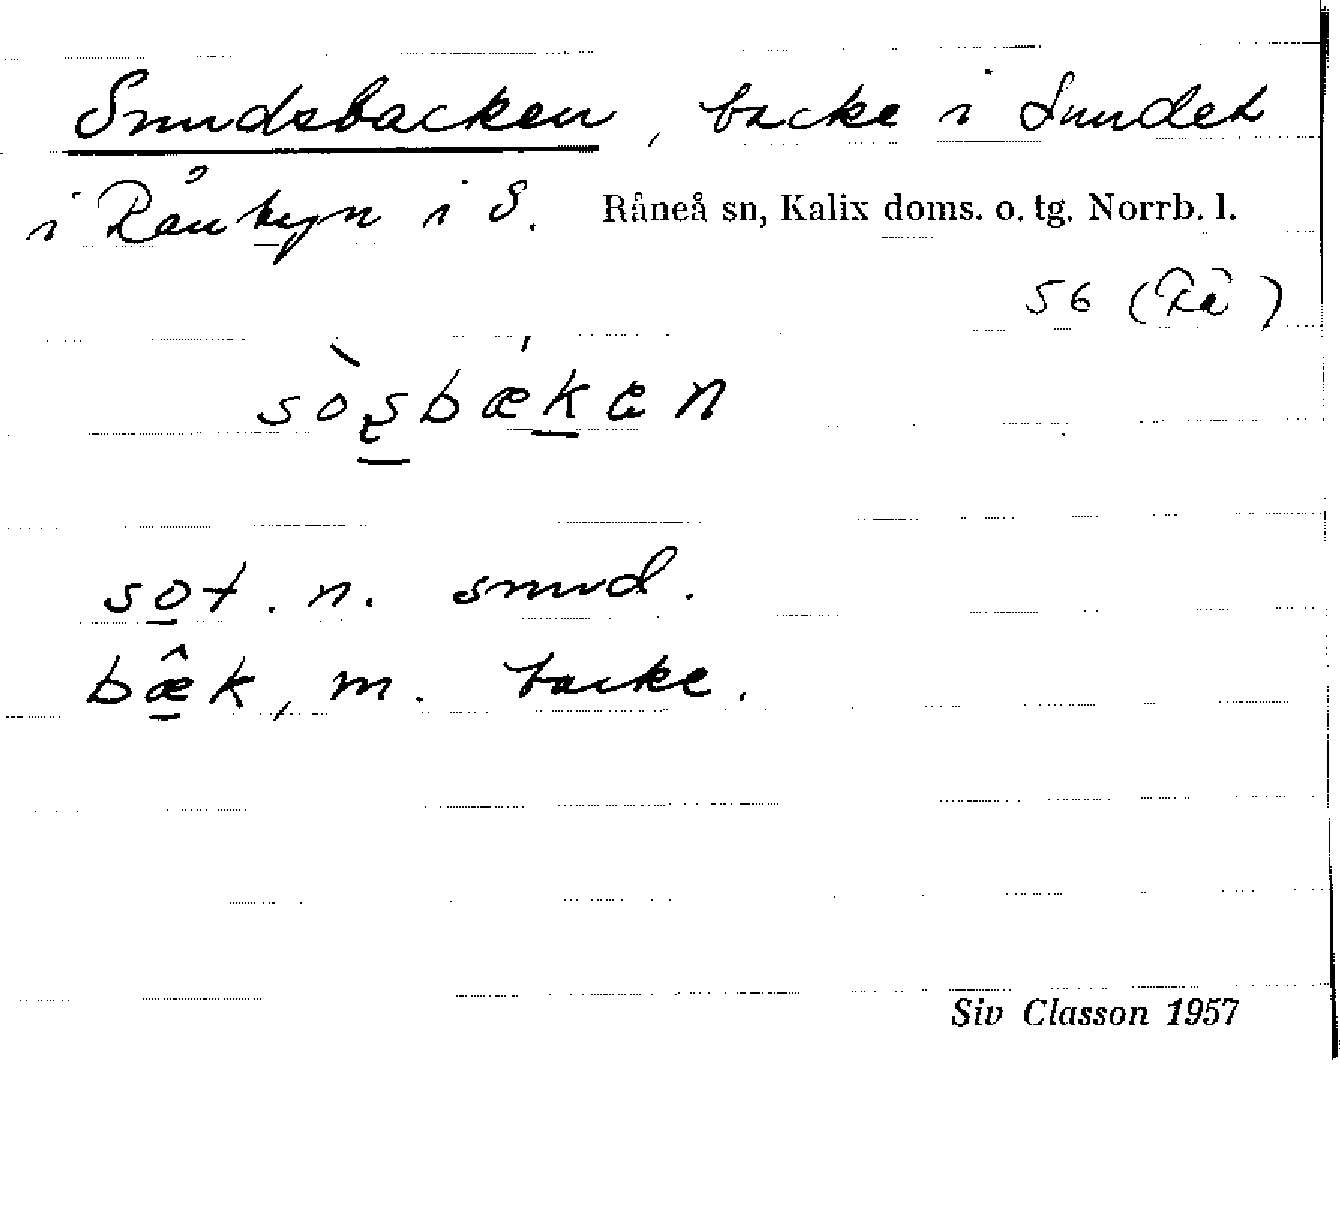 Sundsbacken, backe i Sundet
i Rånbyn i S. Råneå sn, Kalix doms. o. tg. Norrb. l.
56 (Rå)
sòʂbækən
sot. n. sund.
bæ̂k, m. backe.
Siv Classon 1957